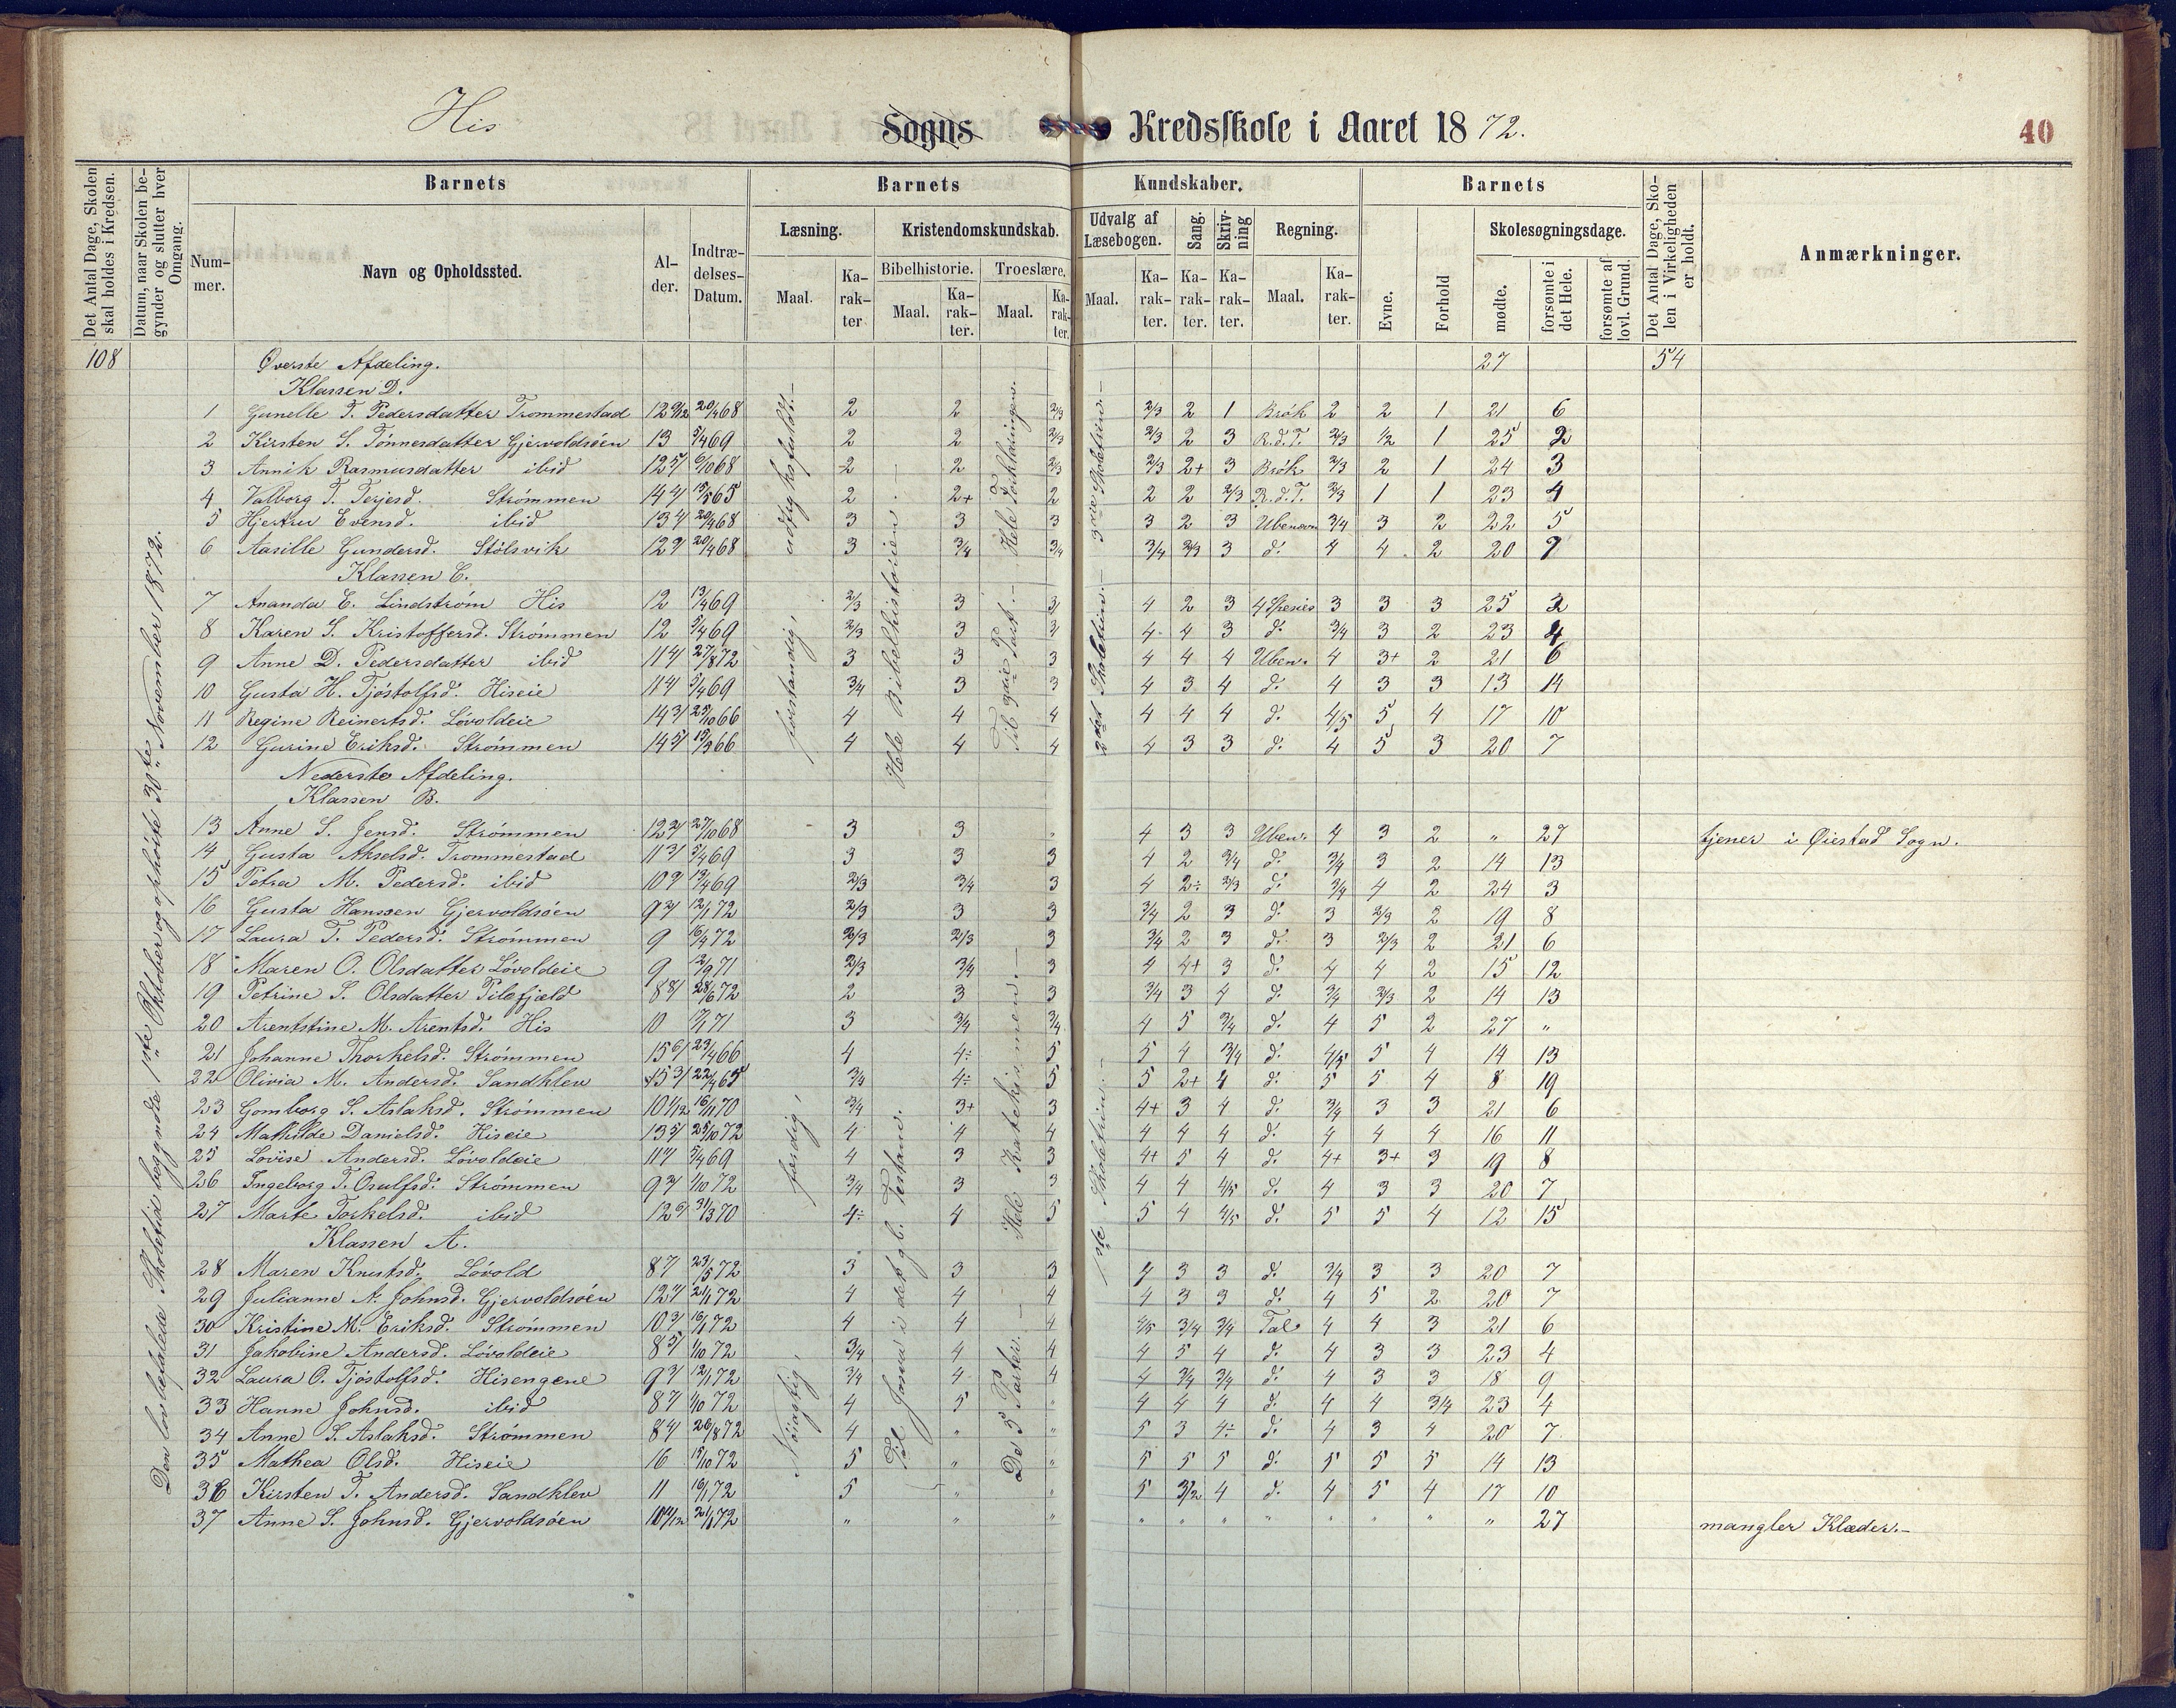 His Sogns Kredsskole i Aaret 1872.
40
Det Antal Dage, Skolen skal holdes i Kredsen.
Datum, naar Skolen begynder og slutter hver Omgang.
Barnets
Barnets
Kundskaber.
Barnets
Det Antal Dage, Skolen i Virkeligheden er holdt.
Anmærkninger.
Nummer.
Navn og Opholdssted.
Alder.
Indtrædelses-Datum.
Læsning.
Kristendomskundskab.
Udvalg af Læsebogen.
Sang.
Skrivning
Regning.
Evne.
Forhold
Skolesøgningsdage.
Bibelhistorie.
Troeslære.
Maal.
Karakter
Maal.
Karakter.
Maal.
Karakter.
Maal.
Karakter.
Karakter.
Karakter.
Maal.
Karakter.
mødte.
forsømte i det Hele.
forsømte af lovl. Grund.
Den lovbefalede Skoletid begyndte 1ste Oktober og ophørte 30te November 1872.
108 Øverste Afdeling. 27 54
Klassen D.
1 Gunelle T. Pedersdatter Trommestad 12 9/12 20/4 68 2 2 2/3 2/3 2 1 Brøk 2 2 1 21 6
2 Kirsten S. Tønnesdatter Gjervoldsøen 13 5/4 69 2 2 2/3 2/3 2 3 R.d.T. 2/3 1/2 1 25 2
3 Annik Rasmusdatter ibid 12 5/ 6/10 68 2 2 2/3 2/3 2+ 3 Brøk 2/3 2 1 24 3
4 Valborg T. Terjesd. Strømmen 14 4/ 15/5 65 2 2+ 2 2 2 2/3 R.d.T. 2/3 1 1 23 4
5 Hjertru Evensd. ibid 13 4/ 20/4 68 3 3 3 3 2 3 Ubenævn 3/4 3 2 22 5
6 Aasille Gundersd. Stølsvik 12 9 20/4 68 3 3/4 3/4 3/4 2/3 3 d: 4 4 2 20 7
Klassen C.
7 Ananda E. Lindstrøm His 12 13/4 69 2/3 3 3/ 4 2 3 4 Spesies 3 3 3 25 2
8 Karen S. Kristoffersd. Strømmen 12 5/4 69 2/3 3 3/ 4 4 3 d: 3/4 3 2 23 4
9 Anne D. Pedersdatter ibid 11 4/ 27/8 72 3 3 3 4 4 4 Uben. 4 3+ 2 21 6
10 Gusta H. Tjøstolfsd. Hiseie 11 4/ 5/4 69 3/4 3 3 4 3 4 d: 4 3 3 13 14
11 Regine Reinertsd. Løvoldeie 14 3/ 25/10 66 4 4 4 4 4 4 d: 4/5 5 4 17 10
12 Gurine Eriksd. Strømmen 14 5/ 15/3 66 4 4 4 4 3 3 d: 4 5 3 20 7
Nederste Afdeling.
Klassen B.
13 Anne S. Jensd. Strømmen 12 2/ 27/10 68 3 3 " 4 3 3 Uben. 4 3 2 " 27 tjener i Øiestad Sogn.
14 Gusta Akselsd. Trommestad 11 3/ 5/4 69 3 3 3 4 2 3/4 d: 3/4 3 2 14 13
15 Petra M. Pedersd. ibid 10 9 13/4 69 2/3 3/4 3 4 2÷ 2/3 d: 3/4 4 2 24 3
16 Gusta Hanssen Gjervoldsøen 9 2/ 12/1 72 2/3 3 3 3/4 2 3 d: 3 2/3 2 19 8
17 Laura T. Pedersd. Strømmen 9 6/4 72 2/3 2/3 3 3/4 2 3 d: 3 2/3 2 21 6
18 Maren O. Olsdatter Løvoldeie 9 2/9 71 2/3 3/4 3 4 4+ 3 d: 4 4 2 15 12
19 Petrine S. Olsdatter Pilefjeld 8 8/ 28/6 72 2 3 3 3/4 3 4 d: 3/4 2/3 2 14 13
20 Arentstine M. Arentsd. His 10 17/1 71 3 3/4 3/4 4 5 3/4 d: 4 5 2 27 "
21 Johanne Thorkelsd. Strømmen 15 6/ 23/4 66 4 4÷ 5 5 4 3/4 d: 4/5 5 4 14 13
22 Olivia M. Andersd. Sandklev 15 3/ 22/4 65 3/4 4÷ 5 5 2+ 4 d: 5 5 4 8 19
23 Gomborg S. Aslaksd. Strømmen 10 1/12 16/11 70 3/4 3+ 3 4+ 3 4 d: 3/4 3 3 21 6
24 Mathilde Danielsd. Hiseie 13 5/ 25/10 72 4 4 4 4 4 4 d: 4 4 4 16 11
25 Lovise Andersd. Løvoldeie 11 7 5/4 69 4 3 3 4+ 5 4 d: 4+ 3+ 3 19 8
26 Ingeborg T. Osulfsd. Strømmen 9 2/ 1/10 72 3/4 3 3 4 4 4/5 d: 4 3 3 20 7
27 Marte Torkelsd. ibid 12 6/ 31/3 70 4÷ 4 5 5 4 4/5 d: 5 5 4 12 15
Klassen A.
28 Maren Knutsd. Løvold 8 7 23/5 72 3 3 3 4 3 3 d: 3/4 3 3 20 7
29 Julianne A. Johnsd. Gjervoldsøen 12 4/ 21/1 72 4 4 4 4 3 3 d: 4 5 2 20 7
30 Kristine M. Eriksd. Strømmen 10 3/ 16/1 72 4 4 4 4/5 3/4 3/4 Tal 4 4 3 21 6
31 Jakobine Andersd. Løvoldeie 8 5/ 1/10 72 3/4 4 4 4 5 4 d: 4 3 3 23 4
32 Laura O. Tjøstolfsd. Hisengene 9 3/ 12/1 72 3/4 4 4 4 3/4 3/4 d: 4 3 3 18 9
33 Hanne Johnsd. ibid 8 7 1/10 72 4 5 " 4 4 4 d: 4 4 3/4 23 4
34 Anne S. Aslaksd. Strømmen 8 4/ 26/8 72 4 " " 5 3 4÷ d: 4 3 4 20 7
35 Mathea Olsd. Hiseie 16 15/10 72 5 " " 5 5 5 d: 5 5 5 14 13
36 Kirsten T. Andersd. Sandklev 11 16/1 72 5 " " 5 3/2 4 d: 4 5 4 17 10
37 Anne S. Johnsd. Gjervoldsøen 21/1 72 " " " " " " " " " " " 27 mangler Klæder.–
forstandig, udtryksfuldt.–
færdig,
Nøiagtig,
Hele Bibelhistorien.–
Til Josva i det gl. Testam.
Hele Forklaringen.
Til 3die Part.–
Hele Katekismen.–
De 5 Parter.–
3die Skoletrin.–
2det Skoletrin.–
1ste Skoletrin.–